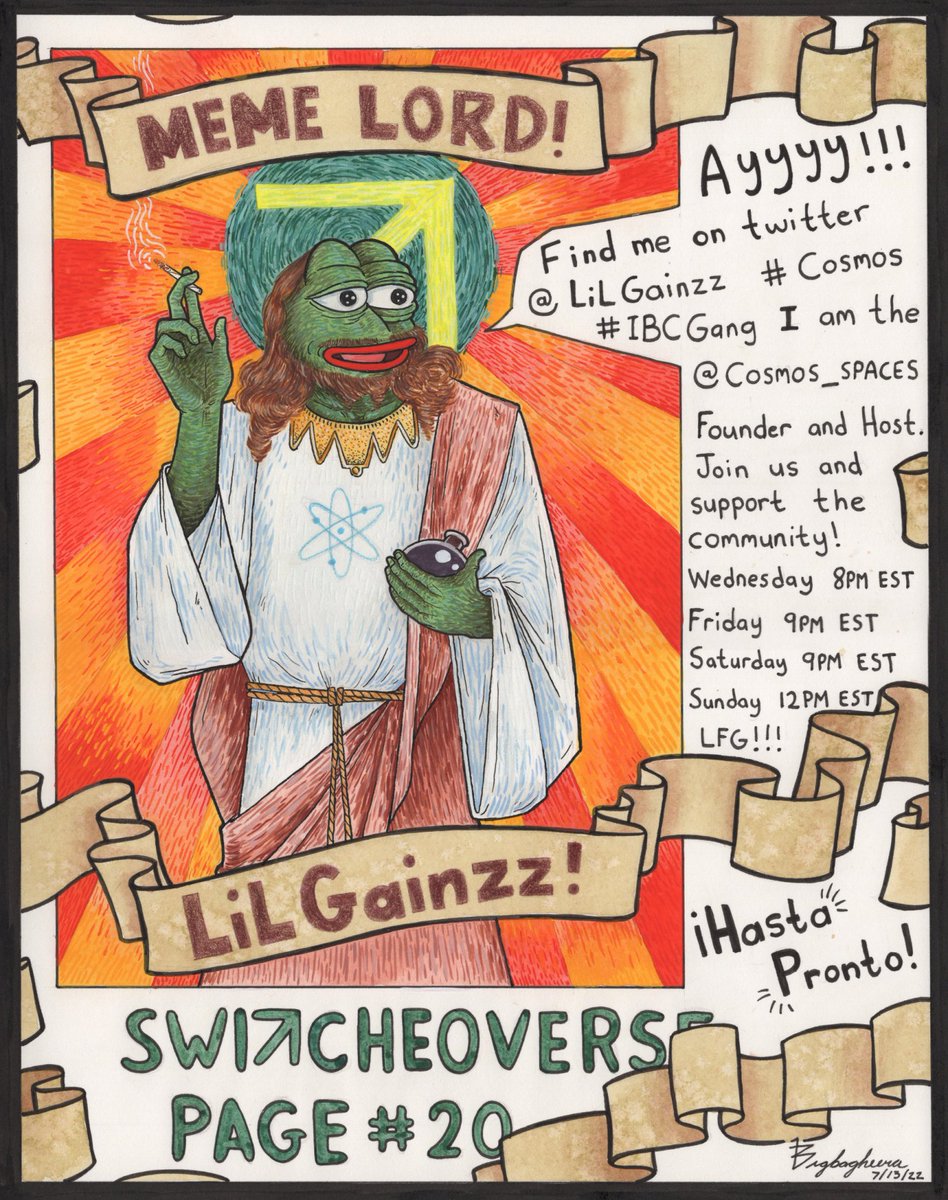 MEME LORD!
Ayyyy!!!
Find me on twitter
@ LiL Gainzz # Cosmos
#IBCGang I am the
@COSMOS_SPACES
Founder and Host.
Join us and
support the
community!
Wednesday 8PM EST
Friday 9PM EST
Saturday 9PM EST
Sunday 12PM EST
LFG!!!
LiL Gainzz!
¡Hasta
Pronto!
SWITCHEOVERSE
PAGE #20
Bigbagheera
7/13/22